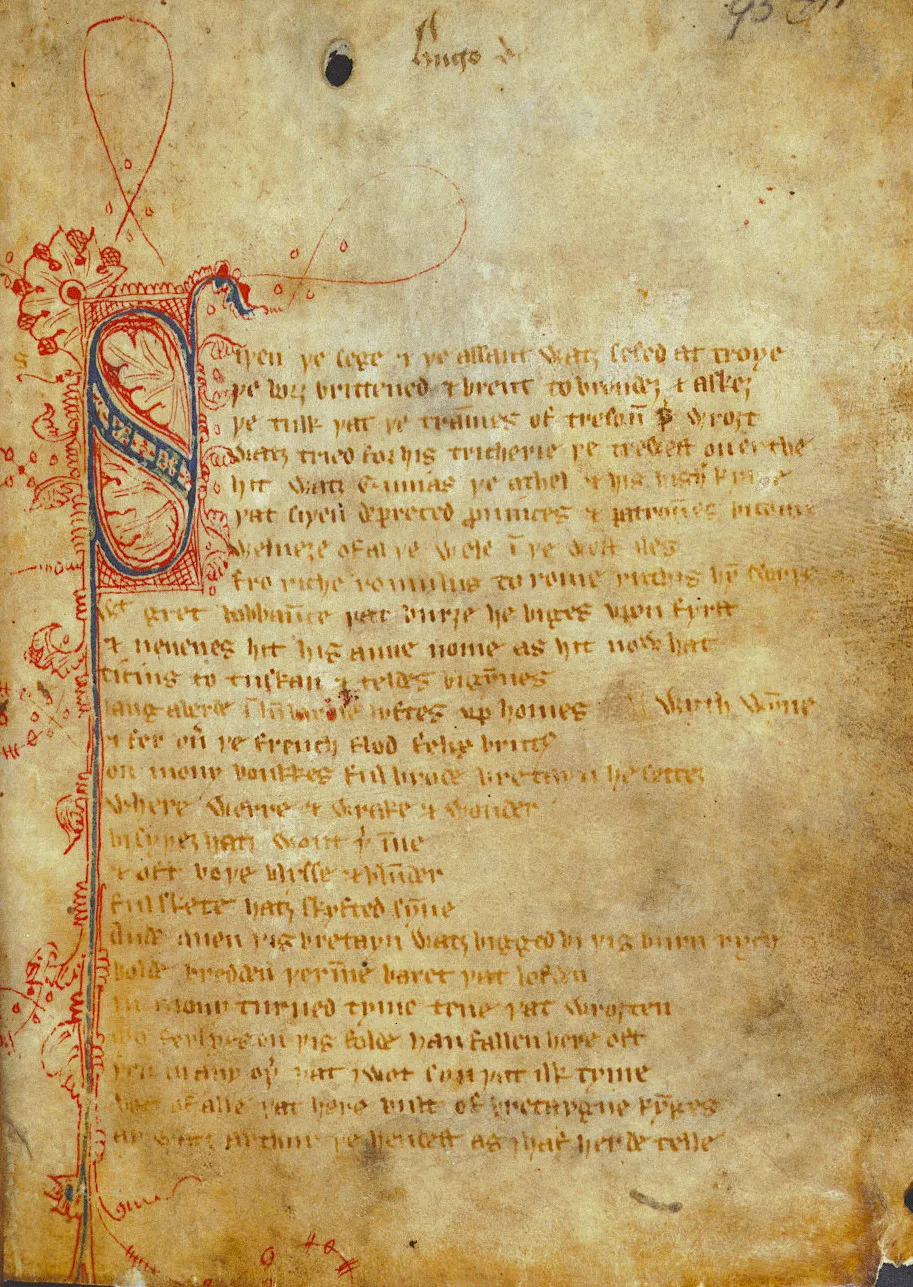 Hugo de
95
Siþen þe sege & þe assaut watz sesed at troye
þe borȝ brittened & brent to brondeȝ & askez
þe tulk þat þe trām̄es of tresoū þ̉ wroȝt
Watz tried for his tricherie þe trewest on erthe
hit watz Ennias þe athel & his highe kynde
þat siþen depreced ꝓuinces & patroūes bicome
Welneȝe of al þe wele ī þe west iles
fro riche romulus to rome ricchis hȳ swyþe
With gret bobbaūce þat burȝe he biges vpon fyrst
& neuenes hit his aune nome as hit now hat
ticius to tuskan & teldes bigȳnes
langaberde ī lumbardie lyftes vp homes with wȳne
& fer oủ þe french flod felix brutꝰ
on mony bonkkes ful brode bretayn he settez
Where werre & wrake & wonder
bi syþez hatz wont þ̉ īne
& oft boþe blysse & blūder
ful skete hatz skyfted sȳne
Ande quen þis bretayn watz bigged bi þis burn rych
bolde bredden þerīne baret þat lofden
in mony turned tyme tene þat wroȝten
mo ferlyes on þis folde han fallen here oft
þen in any oþ̉ þat I wot syn þat ilk tyme
Bot of alle þat here bult of bretaygne kȳges
ay watz arthur þe hendest as I haf herde telle